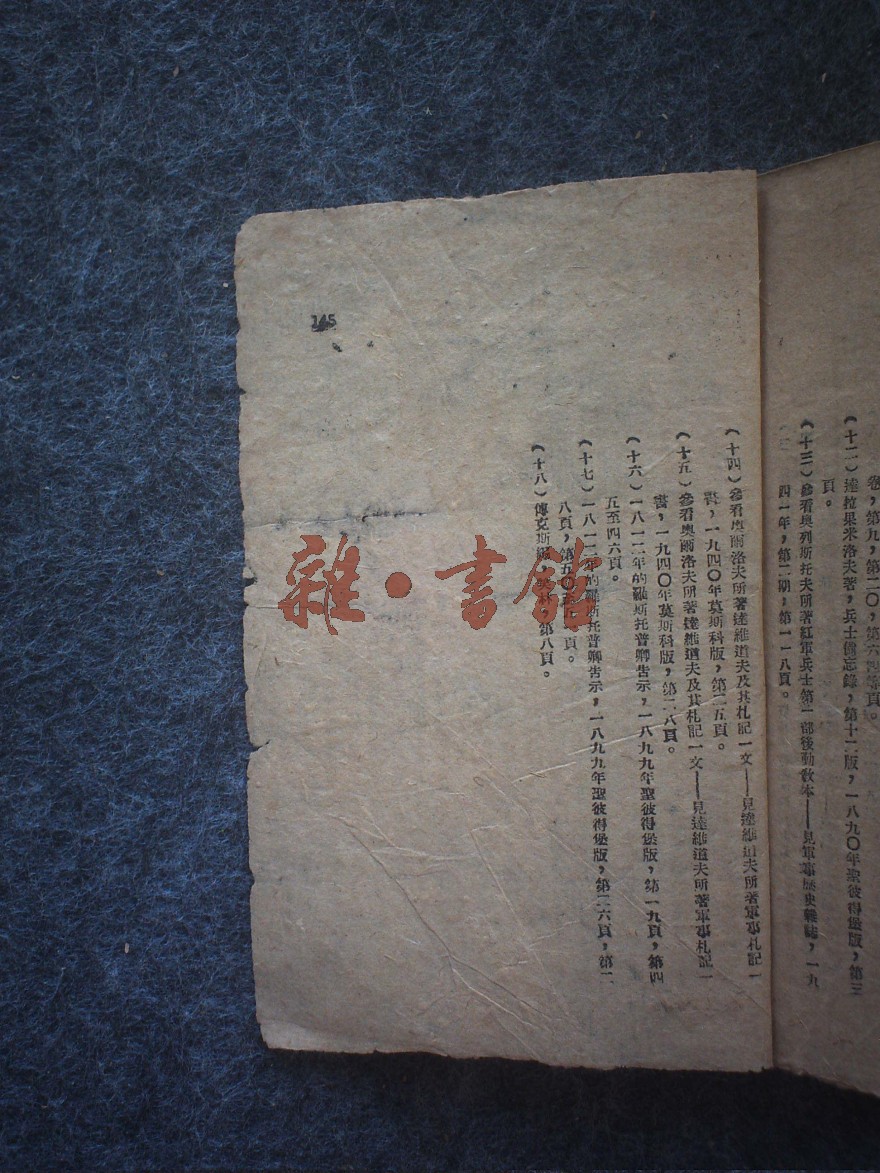 卷，第九，第二〇，第六四等頁。
（十二）達拉果米洛夫著，兵士備忘錄，第十二版，一八九〇年聖彼得堡版，第三
頁。
（十三）參看奧列斯托夫所著紅軍兵士第一部後勤教本——見軍事歷史雜誌，一九
四一年，第二期，第一一八頁。
（十四）參看奧爾洛夫所著達維道夫及其札記一文——見達維道夫所著軍事札記一
書，一九四〇年莫斯科版，第二五頁。
（十五）參看奧爾洛夫所著達維道夫及其札記一文——見達維道夫所著軍事札記一
書，一九四〇年莫斯科版，第二八頁。
（十六）一八一二年的羅斯托普卿告示，一八九九年聖彼得堡版，第一九頁，第四
五至四六頁。
（十七）一八一二年的羅斯托普卿告示，一八九九年聖彼得堡版，第二六頁，第二
八頁，第五〇頁。
（十八）傅克斯 第八頁。
145
雜·書館